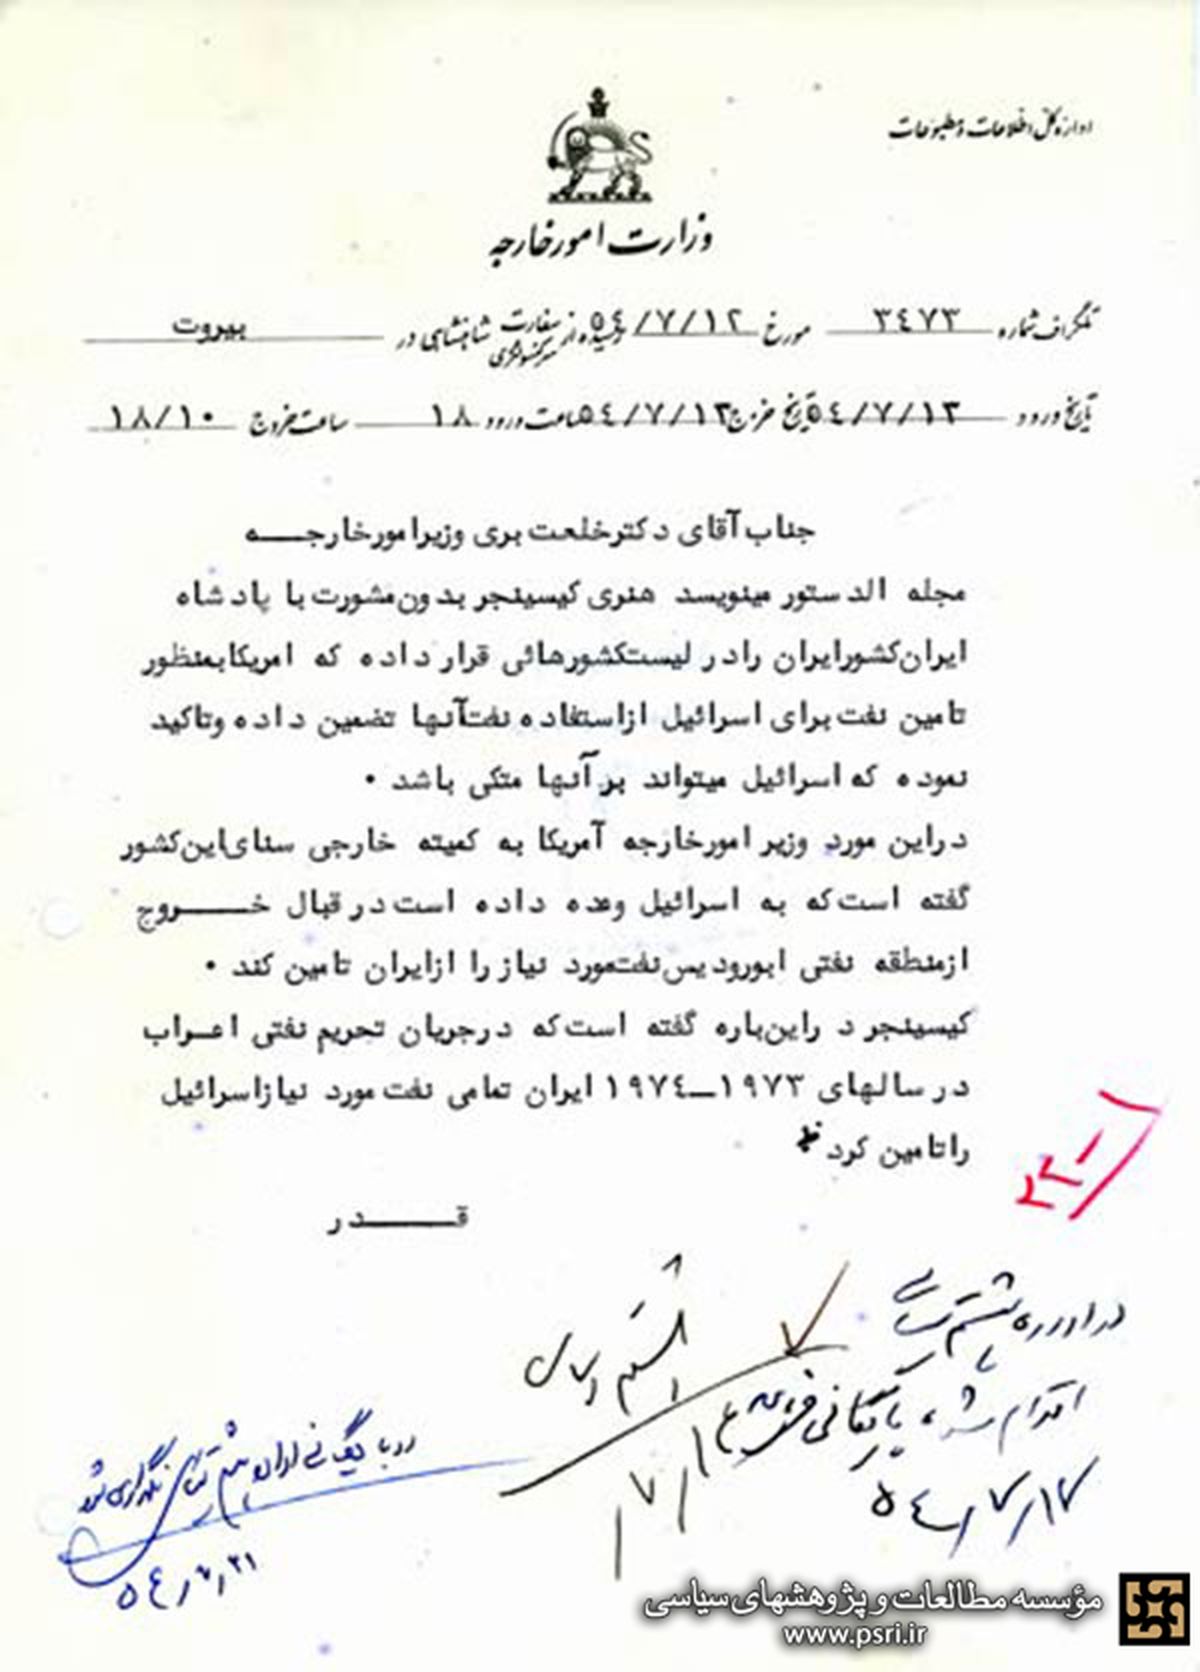 اداره کل اطلاعات و مطبوعات
وزارت امور خارجه
تلگراف شماره ٣٤٧٣ مورخ ٥٤/٧/١٢ رسیده از سفارت شاهنشاهی در بیروت
سرکنسولگری
تاریخ ورود ٥٤/٧/١٣ تاریخ خروج ٥٤/٧/١٣ ساعت ورود ١٨ ساعت خروج ١٨/١٠
جناب آقای دکتر خلعت بری وزیر امور خارجه
مجله الدستور مینویسد هنری کیسینجر بدون مشورت با پادشاه
ایران کشور ایران را در لیست کشورهائی قرار داده که امریکا بمنظور
تامین نفت برای اسرائیل از استفاده نفت آنها تضمین داده و تاکید
نموده که اسرائیل میتواند بر آنها متکی باشد ٠
در این مورد وزیر امور خارجه آمریکا به کمیته خارجی سنای این کشور
گفته است که به اسرائیل وعده داده است در قبال خروج
از منطقه نفتی ابورودیس نفت مورد نیاز را از ایران تامین کند ٠
کیسینجر در این باره گفته است که در جریان تحریم نفتی اعراب
در سالهای ١٩٧٣-١٩٧٤ ایران تمامی نفت مورد نیاز اسرائیل
را تامین کرد
قدر
در اداره هشتم سیاسی
اقدام شد، بایگانی
٥٤/٧/١٧
در بایگانی اداره هشتم سیاسی نگهداری شود
مؤسسه مطالعات و پژوهشهای سیاسی
www.psri.ir